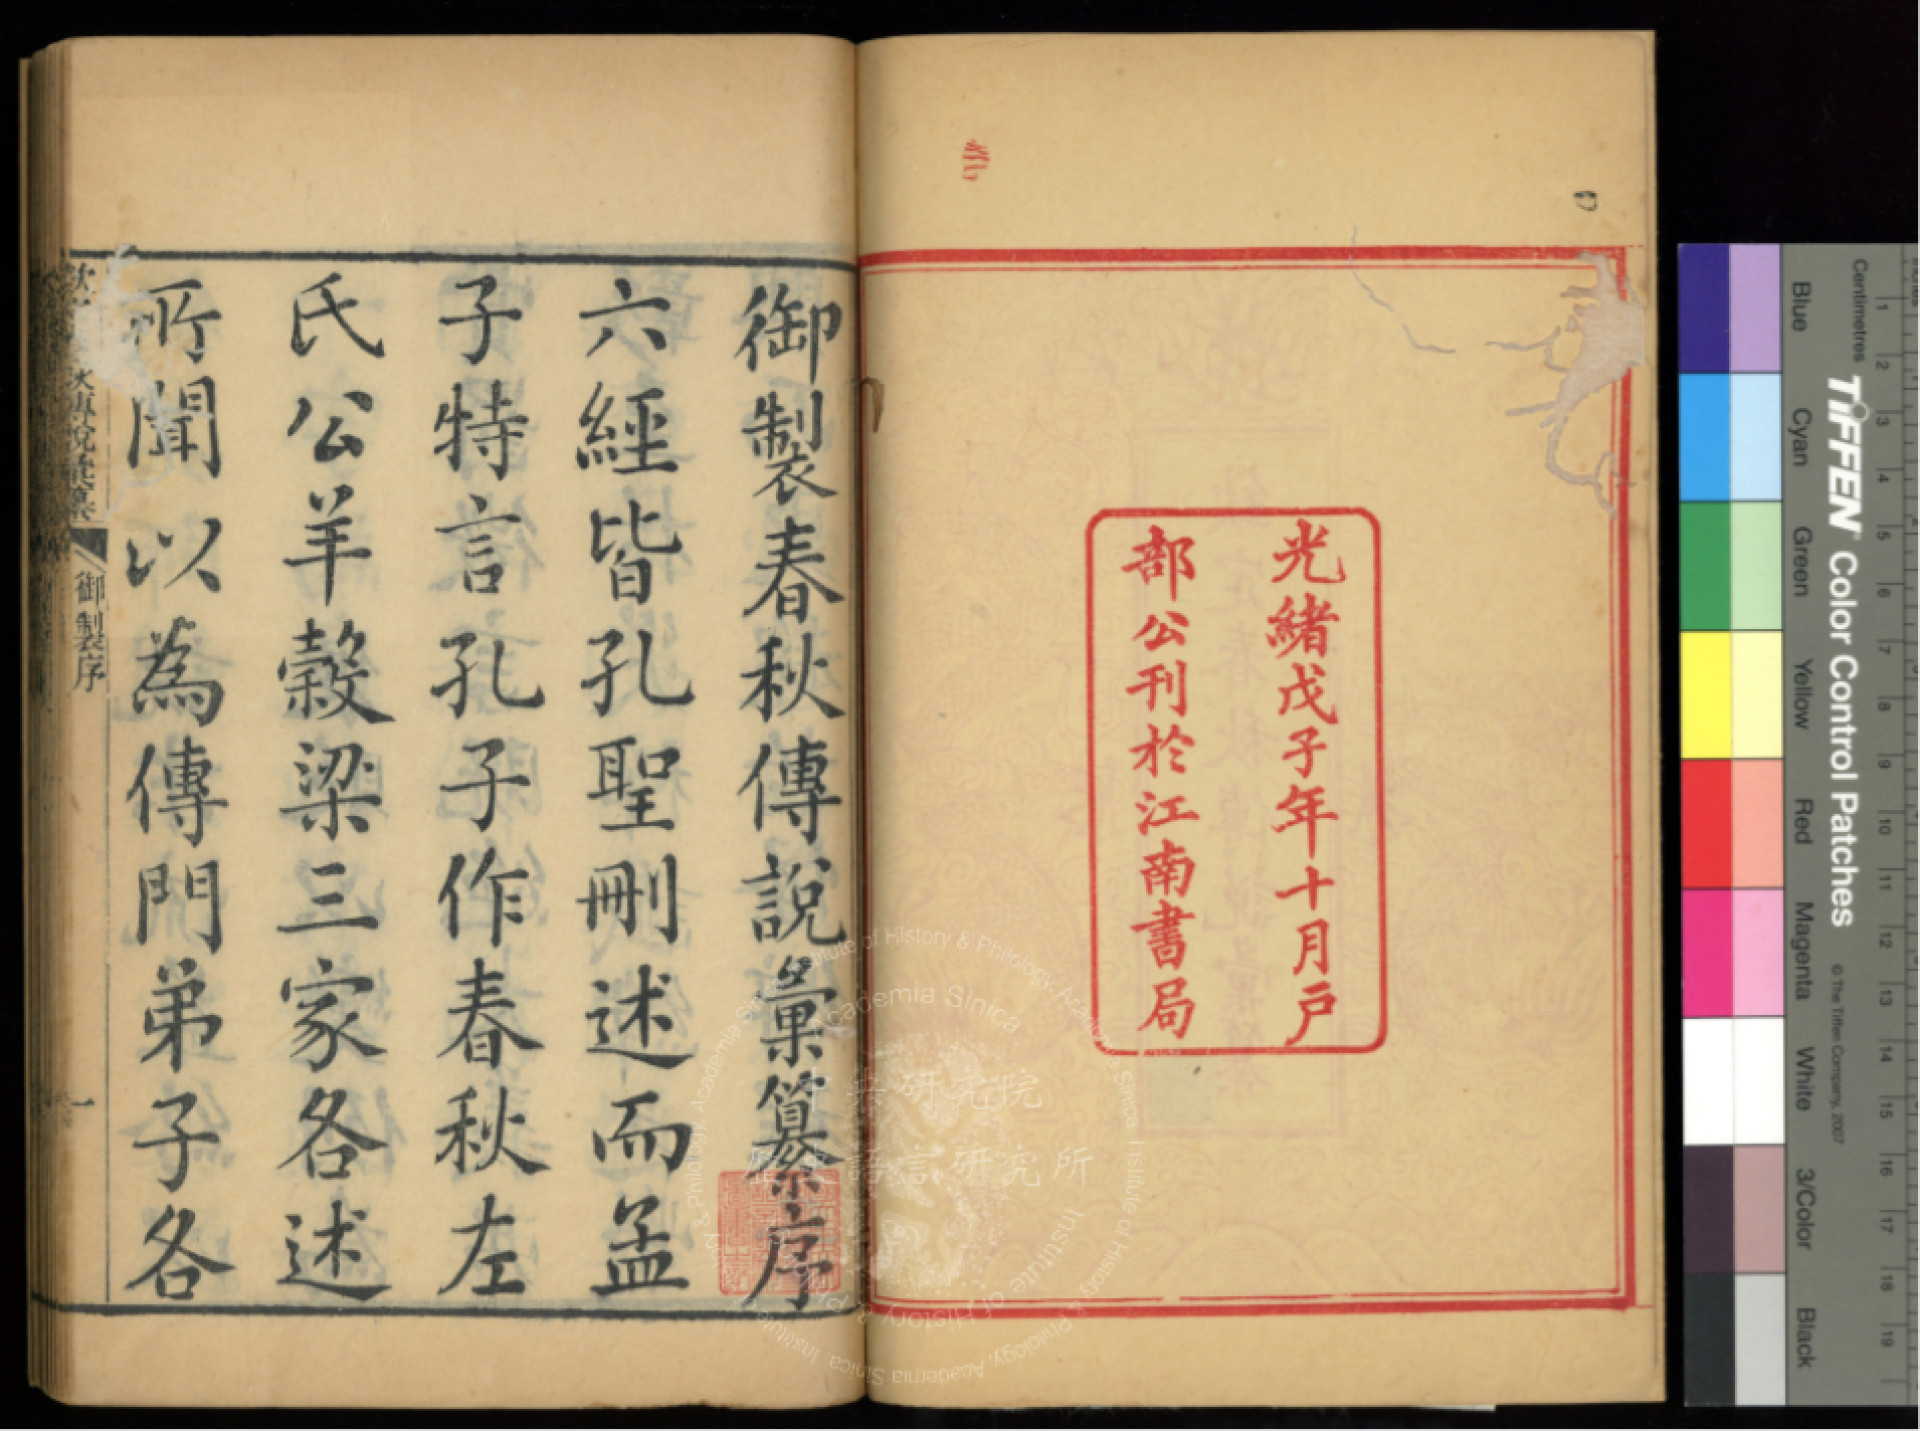 光緒戊子年十月戶
部公刊於江南書局
御製春秋傳說彙纂序
六經皆孔聖刪述而孟
子特言孔子作春秋左
氏公羊穀梁三家各述
所聞以為傳門弟子各
御製序
一
中央研究院
歷史語言研究所
Institute of History & Philology, Academia Sinica
Centimetres
TIFFEN Color Control Patches
© The Tiffen Company, 2007
Blue
Cyan
Green
Yellow
Red
Magenta
White
3/Color
Black
1
2
3
4
5
6
7
8
9
10
11
12
13
14
15
16
17
18
19